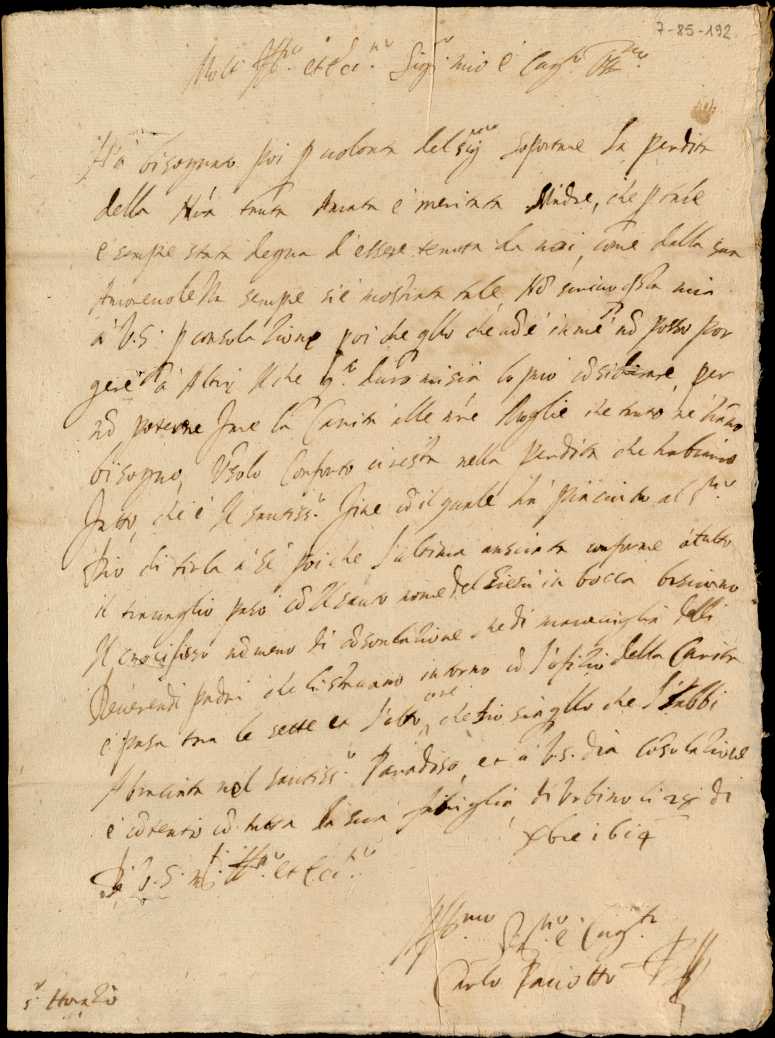 7-85-192
Molt Ill.re et Ecc.te Sig.r mio e Cug.no
Hà bisognato poi p uolontà del sig.re soportare la perdita
della tanta Amata e meritata Madre, che p tale
e sempre stata degna d'essere tenuta da noi, come dalla sua
Amoreuolezza sempre si è mostrata tale, nõ mia
à V.S. p consolatione poi che qllo che nõ è in me nõ posso por
gere à Altri, il che lo può cõsiderare, per
nõ poterne fare la Carità alle Moglie che tanto ne hano
bisogno, Vn solo Conforto ci resta nella perdita che habiamo
fatto, che è Il santiss.o fine cõ il quale hà piaciuto al S.re
Dio di tirla à sè poi che l'ultima conforme à tutto
il trauaglio pasò cõ Il santo nome del Giesù in bocca basciando
Il crocifisso nõ meno di cõsolatione che di marauiglia delli
Reuerendi padri che li stauano intorno cõ l'ofitio della Carità
e pasò tra le sette et l'otto, che Dio sia qllo che l'habbi
Abraciata nel santiss.o Paradiso, et à V.S. dia cõsolatione
e cõtento cõ tutta la sua famiglia, di Vrbino li di
Xbre 1614
Di V.S. m.to Ill.re et Ecc.te
Aff.mo Ser.re e Cug.no
Carlo Paciotto
s.r Horatio